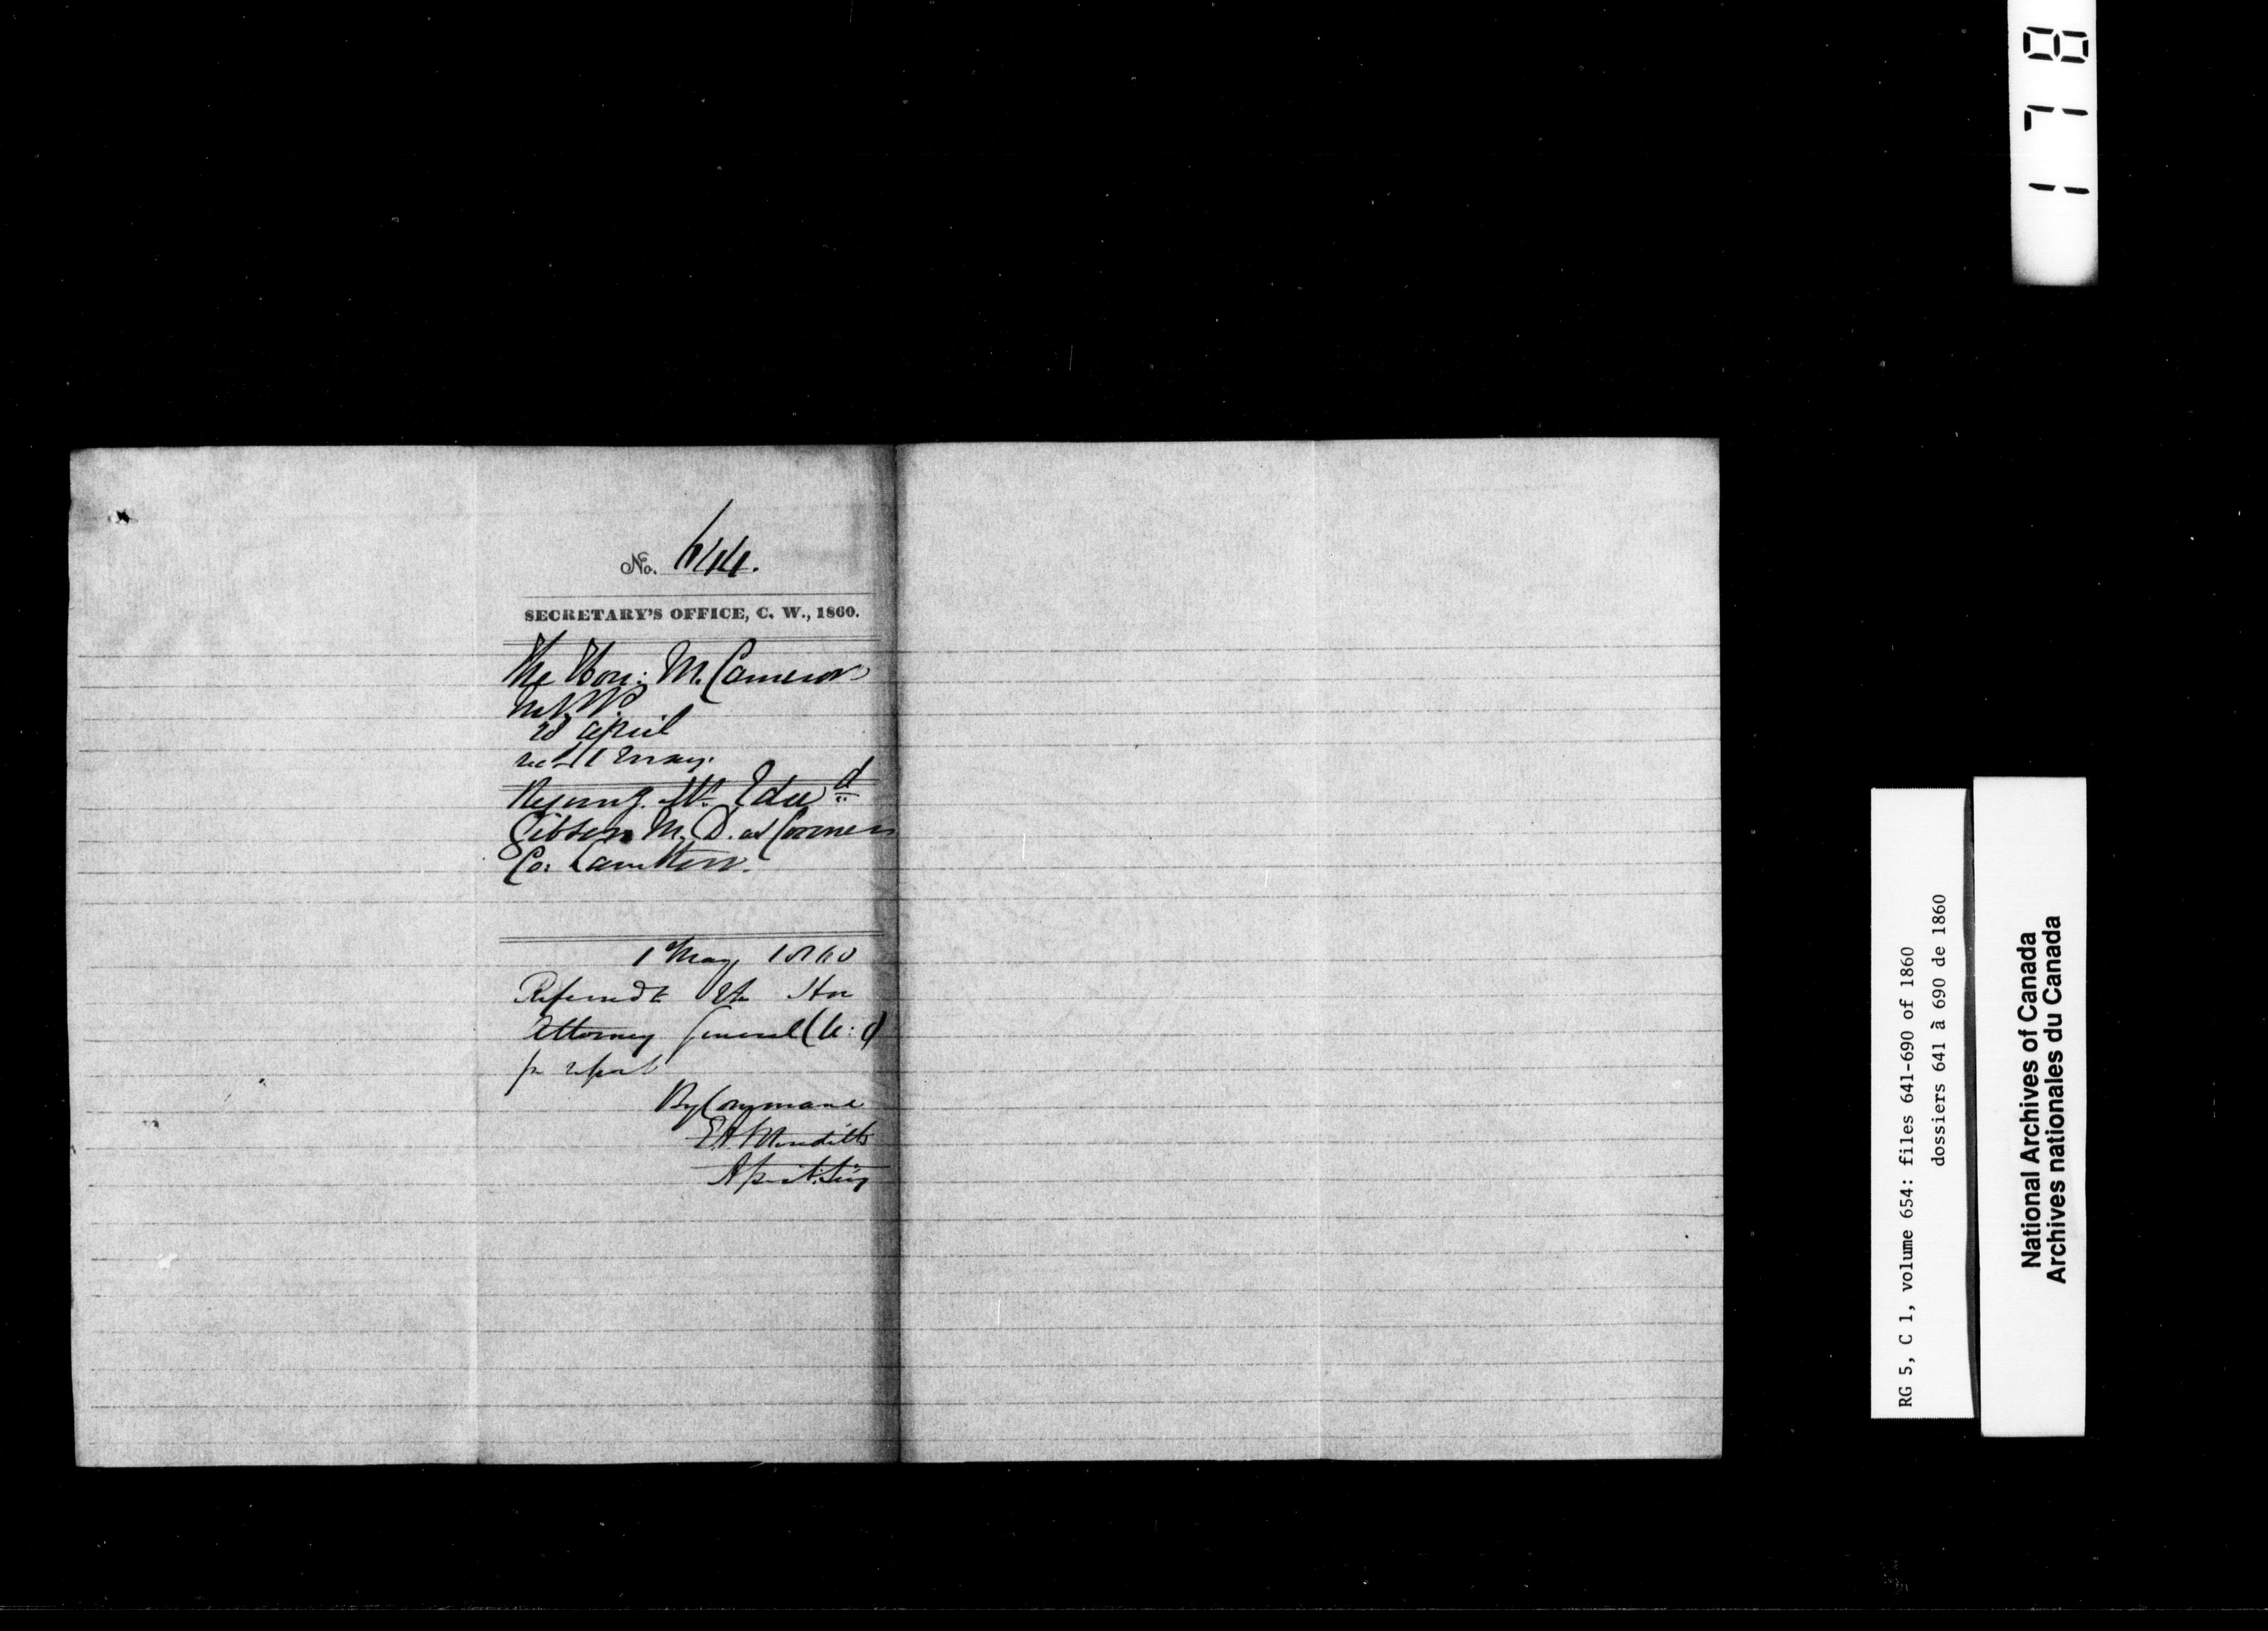 No. 644.
SECRETARY'S OFFICE, C. W., 1860.
The Hon: M. Cameron
M.P.P.
28 April
recd 1 May.
Recomg. Mr. Edwd
Gibson M. D. as Coroner
Co: Lambton.
1 May 1860
Referred to the Hon
Attorney General (U: C)
for report
By Command
E A Meredith
Asst. Secy
1 7 8
RG 5, C 1, volume 654: files 641-690 of 1860
dossiers 641 à 690 de 1860
National Archives of Canada
Archives nationales du Canada